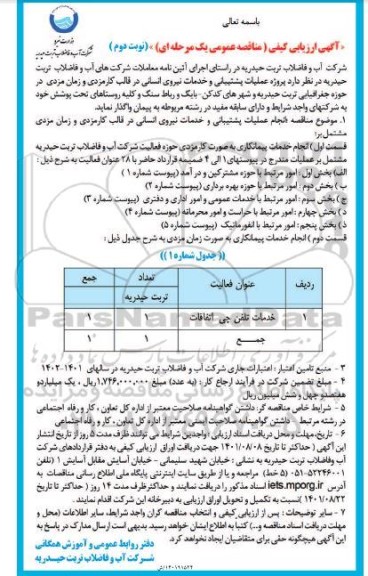 باسمه تعالی
وزارت نیرو
شرکت آب و فاضلاب تربت حیدریه
«آگهی ارزیابی کیفی ( مناقصه عمومی یک مرحله ای) » (نوبت دوم )
شرکت آب و فاضلاب تربت حیدریه در راستای اجرای آئین نامه معاملات شرکت های آب و فاضلاب تربت
حیدریه در نظر دارد پروژه عملیات پشتیبانی و خدمات نیروی انسانی در قالب کارمزدی و زمان مزدی در
حوزه جغرافیایی تربت حیدریه و شهر های کدکن-بایک و رباط سنگ و کلیه روستاهای تحت پوشش خود
به شرکتهای واجد شرایط و دارای سابقه مفید در رشته مربوطه به پیمان واگذار نماید.
۱. موضوع مناقصه :انجام عملیات پشتیبانی و خدمات نیروی انسانی در قالب کارمزدی و زمان مزدی
مشتمل بر:
قسمت اول ) انجام خدمات پیمانکاری به صورت کارمزدی حوزه فعالیت شرکت آب و فاضلاب تربت حیدریه
مشتمل بر عملیات مندرج در پیوستهای ۱ الی ۴ ضمیمه قرارداد حاضر با ۲۸ عنوان فعالیت به شرح ذیل :
الف) بخش اول : امور مرتبط با حوزه مشترکین و در آمد (پیوست شماره ۱ )
ب ) بخش دوم : امور مرتبط با حوزه بهره برداری (پیوست شماره ۲)
ج ) بخش سوم : امور مرتبط با خدمات عمومی و امور اداری و دفتری (پیوست شماره ۳)
د ) بخش چهارم : امور مرتبط با حراست و امور محرمانه (پیوست شماره ۴)
ذ ) بخش پنجم: امور مرتبط با انفورماتیک (پیوست شماره ۵)
قسمت دوم ) انجام خدمات پیمانکاری به صورت زمان مزدی به شرح جدول ذیل :
(( جدول شماره ۱ ))
ردیف عنوان فعالیت تعداد تربت حیدریه جمع
۱ خدمات تلفن چی اتفاقات ۱ ۱
جمـــع ۱ ۱
۳ - منبع تامین اعتبار: اعتبارات جاری شرکت آب و فاضلاب تربت حیدریه در سالهای ۱۴۰۱-۱۴۰۲
۴ - مبلغ تضمین شرکت در فرآیند ارجاع کار : (به عدد) مبلغ ۱،۷۴۶،۰۰۰،۰۰۰ ریال ، یک میلیاردو
هفتصدو چهل و شش میلیون ریال
۵ - شرایط خاص مناقصه گر: داشتن گواهینامه صلاحیت معتبر از اداره کل تعاون ، کار و رفاه اجتماعی
در رشته مرتبط - داشتن گواهینامه صلاحیت ایمنی معتبر از اداره کل تعاون ، کار و رفاه اجتماعی
۶ - تاریخ، مهلت و محل دریافت اسناد ارزیابی : واجدین شرایط می توانند ظرف مدت ۵ روز از تاریخ انتشار
این آگهی ( حداکثر تا تاریخ ۱۴۰۱/۰۸/۰۸ جهت دریافت اوراق ارزیابی کیفی به دفتر قراردادهای شرکت
آب وفاضلاب تربت حیدریه به نشانی: خیابان شهید سلیمانی - خیابان آسایش مقابل آسایش ۱ (تلفن
۵۲۲۴۶۰۰۱-۰۵۱ (۵ خط) مراجعه و یا از طریق سایت اینترنتی پایگاه ملی اطلاع رسانی مناقصات به
آدرس iets.mporg.ir اسناد مذکور را دریافت نمایند و حداکثر ظرف مدت ۱۴ روز ( حداکثر تا تاریخ
۱۴۰۱/۰۸/۲۲ )نسبت به تکمیل و تحویل اوراق ارزیابی به دبیرخانه این شرکت اقدام نمایند .
۷ - سایر توضیحات : پس از ارزیابی کیفی و انتخاب مناقصه گران واجد شرایط، سایر اطلاعات (محل و
مهلت دریافت اسناد مناقصه و...) کتبا به اطلاع ایشان خواهد رسید. بدیهی است ارسال مدارک در پاسخ به
این آگهی هیچگونه حقی برای متقاضیان ایجاد نخواهد کرد.
دفتر روابط عمومی و آموزش همگانی
شرکت آب و فاضلاب تربت حیدریه